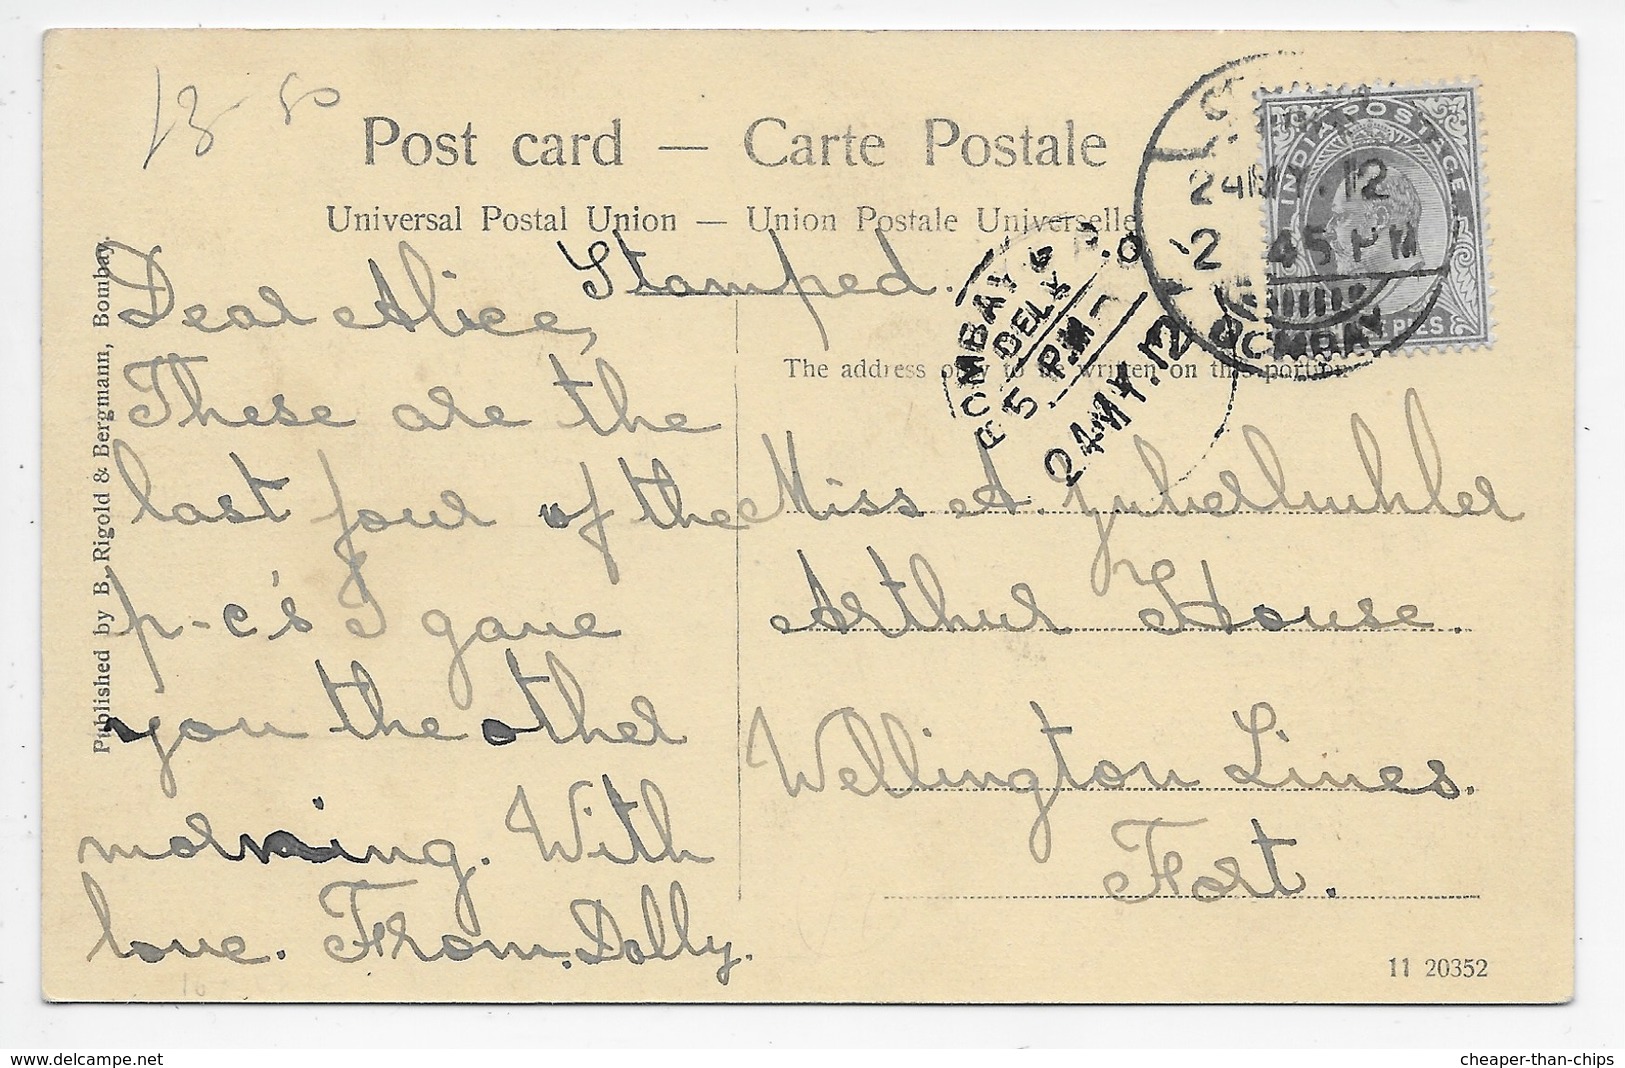 13-80
Post card — Carte Postale
Universal Postal Union — Union Postale Universelle
Stamped.
Dear Alice,
These are the
last four of the
p-c's I gave
you the other
morning. With
love. From. Dolly.
Published by B. Rigold & Bergmann, Bombay.
The address only to be written on this portion
Miss A.
Arthur House.
Wellington Lines.
Fort.
11 20352
INDIA POSTAGE
PIES
24 MY.12
2 45 PM
BOMBAY
BOMBAY G.P.O.
DELY
5 P.M
24 MY.12
delcampe.net
cheaper-than-chips